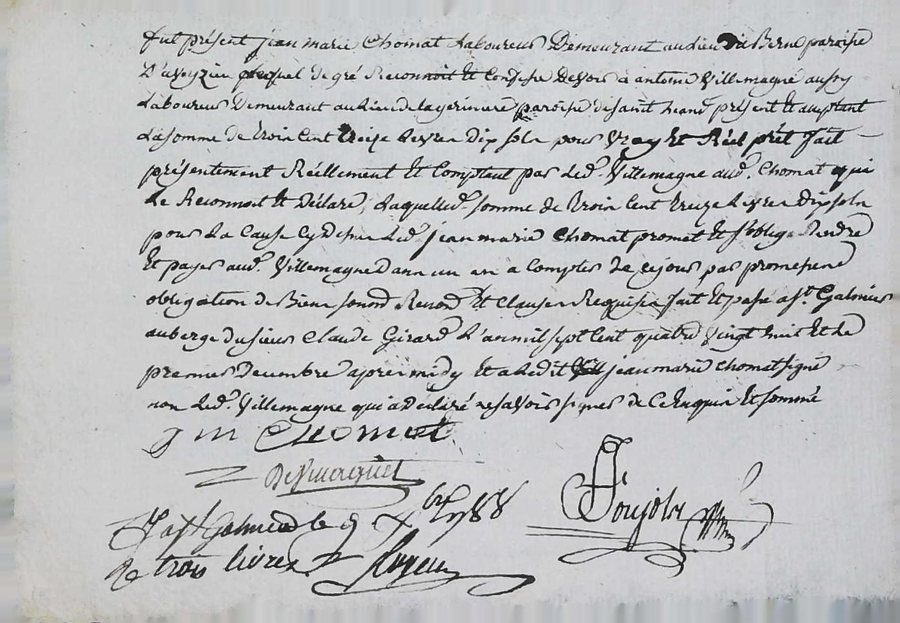 fut présent jean marie Chomat Laboureur Demeurant audieu de Berne paroisse
D'aveyzieu lequel de gré Reconnoit Et Confesse Devoir à antoine Villemagne aussy
Laboureur Demeurant au Lieu de paroisse de saint present Et acceptant
La somme de trois Cent treize Livres Dix sols pour Vray Et Réel prêt fait
présentement Réellement Et Comptant par Led. Villemagne aud. Chomat qui
Le Reconnoit Et Déclare, Laquelled. somme de trois Cent treize Livres dix sols
pour La Cause Cy dessus Led. jean marie Chomat promet Et s'oblige Rendre
Et payer aud. Villemagne Dans un an a Compter de ce jour par promesse
obligation de Biens Renond. Et Clauses Requises fait Et passé a St. Galmier
auberge du sieur Claude Girard L'an mil sept Cent quatre Vingt huit Et Le
premier Decembre après midy Et a Ledit jean marie Chomat signé
non Led. Villemagne qui a Déclaré ne savoir signer de Ce Enquis Et sommé
J m Chomat
Ponjols
a St Galmier le 9 Xbre 1788
Re trois livres